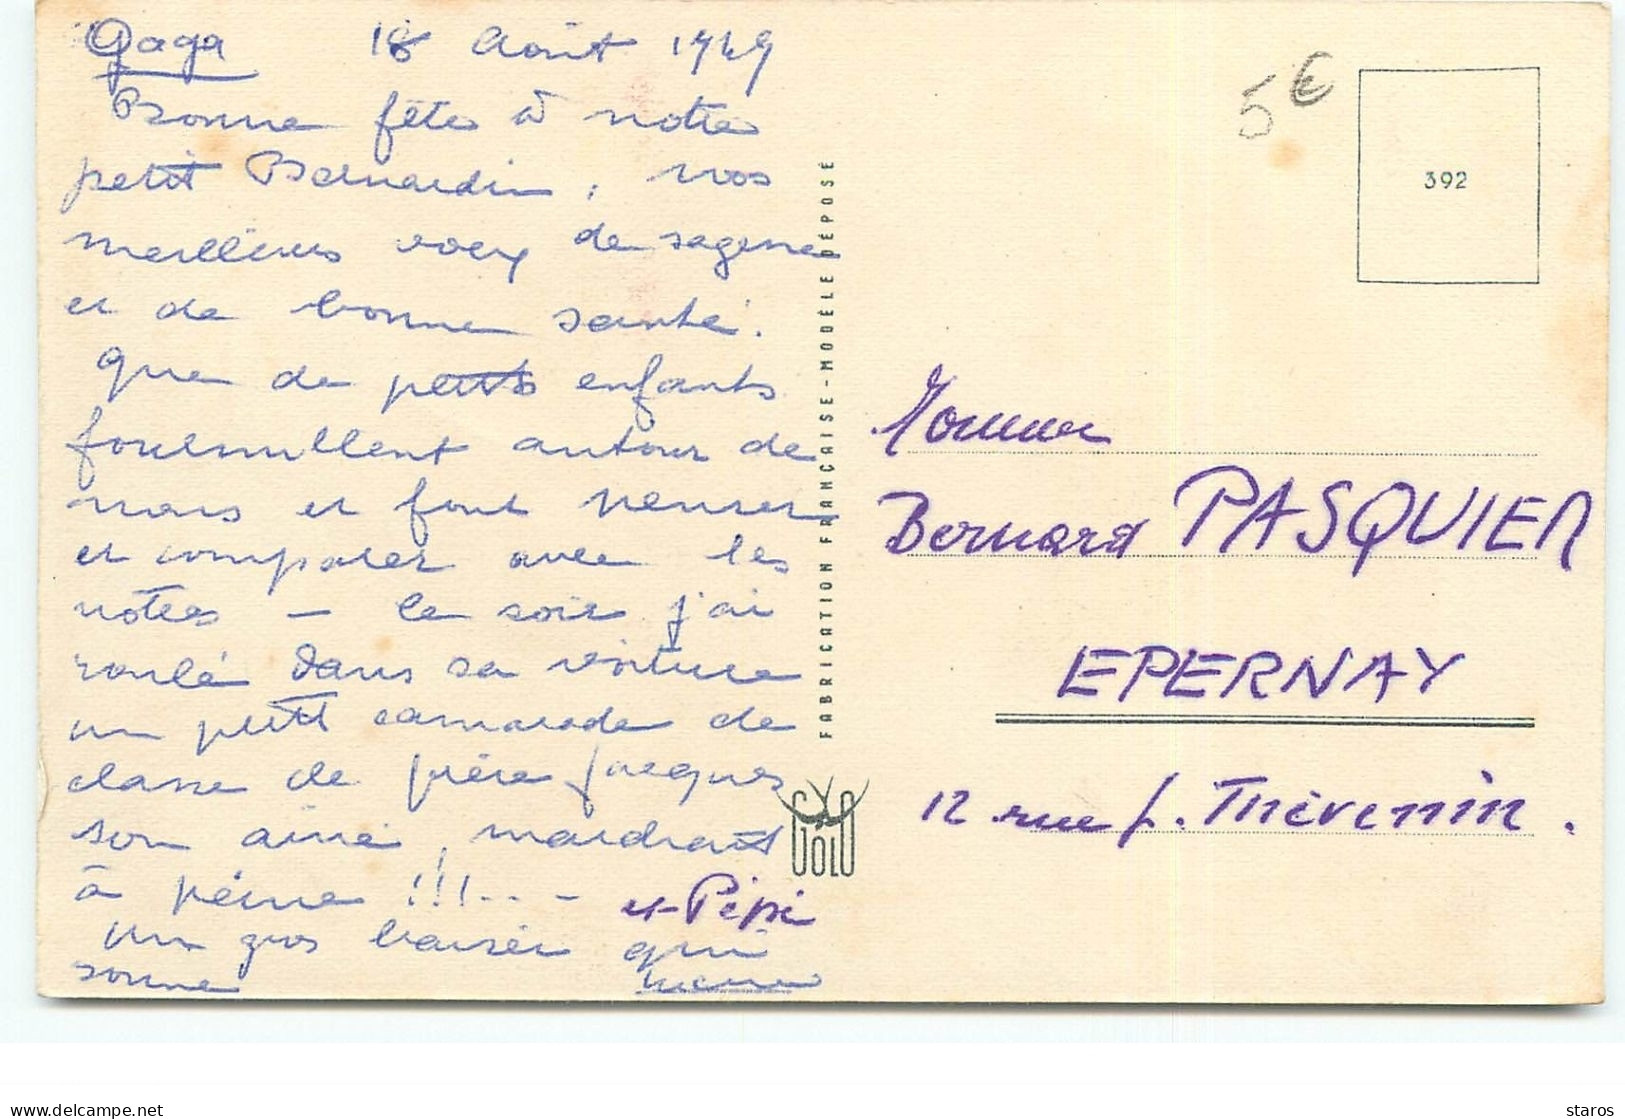 Gaga 18 Août 1949
Bonne fête à notre
petit Bernardin, nos
meilleurs voeux de sagesse
et de bonne santé.
Que de petits enfants
fourmillent autour de
nous et font penser
et comparer avec les
nôtres – le soir j'ai
roulé dans sa voiture
un petit camarade de
classe de frère Jacques
son ainé, marchant
à peine !!!...-
un gros baiser qui
sonne
et Pépé
5€
392
Monsieur
Bernard PASQUIER
EPERNAY
12 rue J. Thévenin.
FABRICATION FRANÇAISE - MODÈLE DÉPOSÉ
GOLO
staros